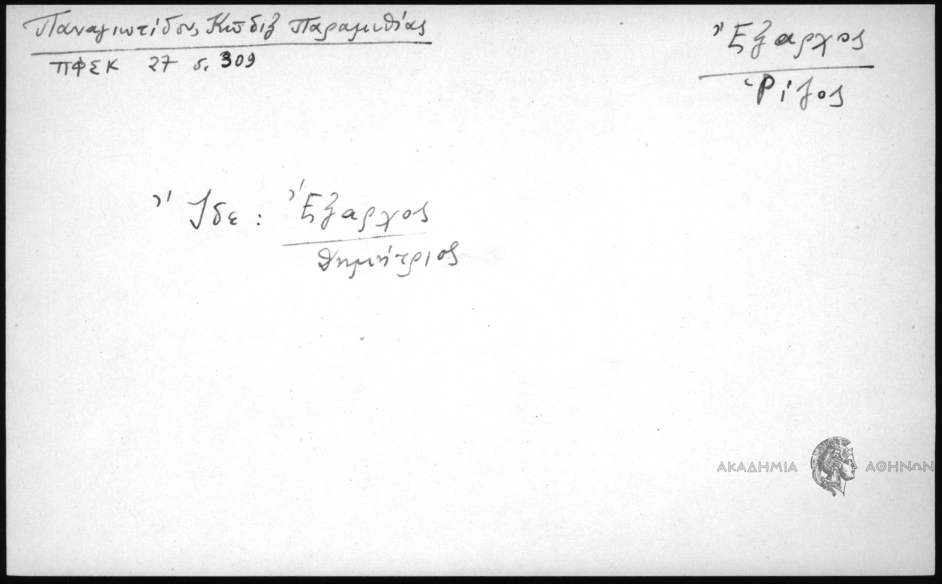 Παναγιωτίδου, Κώδιξ Παραμυθίας
ΠΦΣΚ 27 σ. 309
Ἔξαρχος
Ῥίζος
Ἴδε: Ἔξαρχος
Δημήτριος
ΑΚΑΔΗΜΙΑ ΑΘΗΝΩΝ